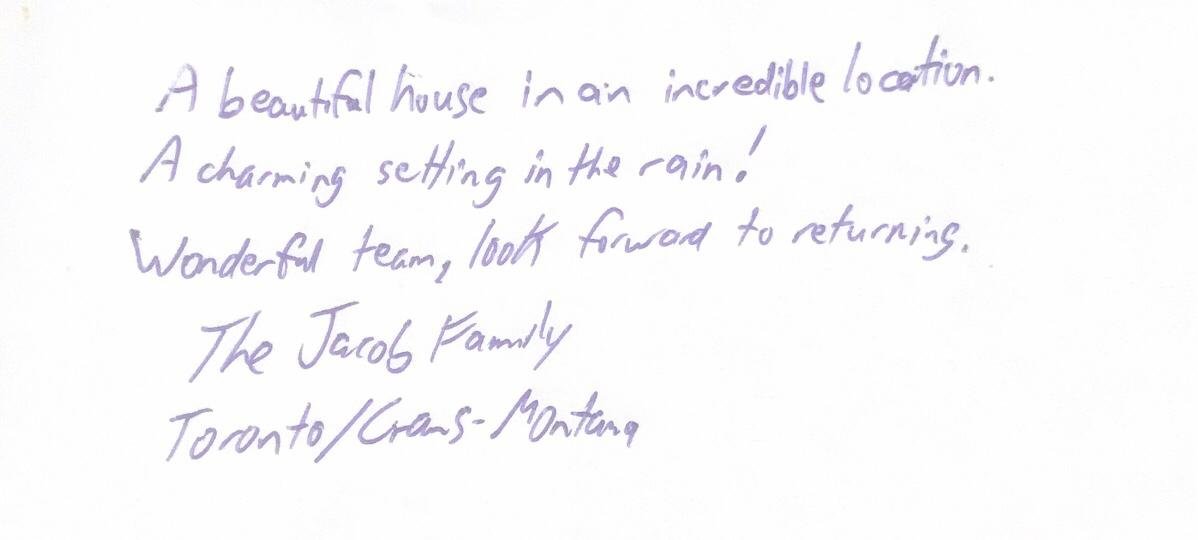 A beautiful house in an incredible location.
A charming setting in the rain!
Wonderful team, look forward to returning.
The Jacob Family
Toronto/Crans-Montana